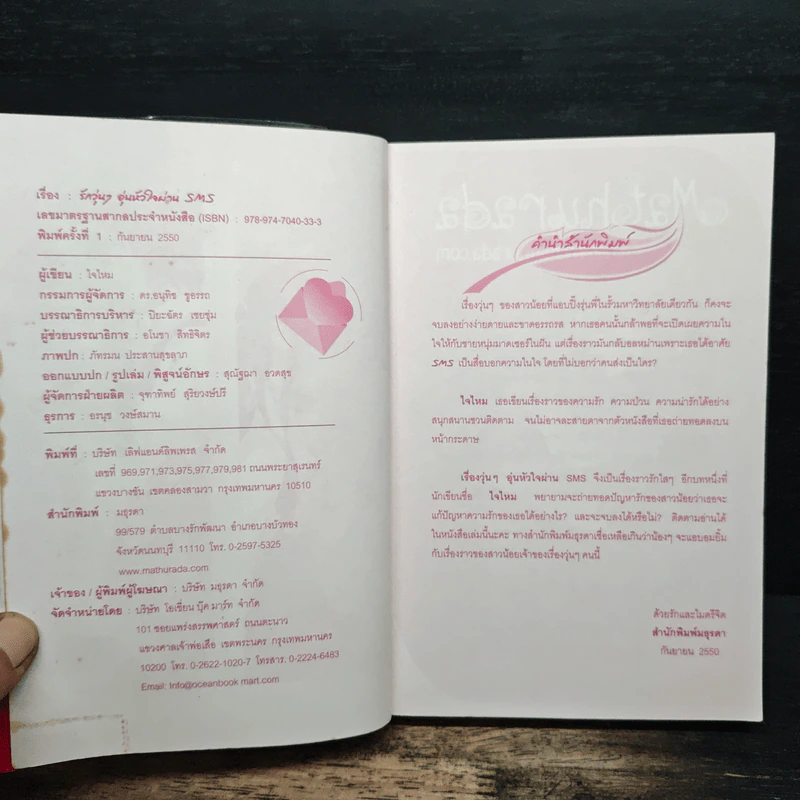 เรื่อง : รักวุ่นๆ อุ่นหัวใจผ่าน SMS
เลขมาตรฐานสากลประจำหนังสือ (ISBN) : 978-974-7040-33-3
พิมพ์ครั้งที่ 1 : กันยายน 2550
ผู้เขียน : ใจไหม
กรรมการผู้จัดการ : ดร.อนุทิช ชูอรรถ
บรรณาธิการบริหาร : ปิยะฉัตร เชยชุ่ม
ผู้ช่วยบรรณาธิการ : อโนชา สิทธิจิตร
ภาพปก : ภัทรมน ประสานสุขลาภ
ออกแบบปก / รูปเล่ม / พิสูจน์อักษร : สุณัฐฌา อวดสุข
ผู้จัดการฝ่ายผลิต : จุฑาทิพย์ สุริยวงษ์ปรี
ธุรการ : อรนุช วงษ์สมาน
พิมพ์ที่ : บริษัท เลิฟแอนด์ลิพเพรส จำกัด
เลขที่ 969,971,973,975,977,979,981 ถนนพระยาสุเรนทร์
แขวงบางชัน เขตคลองสามวา กรุงเทพมหานคร 10510
สำนักพิมพ์ : มธุรดา
99/579 ตำบลบางรักพัฒนา อำเภอบางบัวทอง
จังหวัดนนทบุรี 11110 โทร. 0-2597-5325
www.mathurada.com
เจ้าของ / ผู้พิมพ์ผู้โฆษณา : บริษัท มธุรดา จำกัด
จัดจำหน่ายโดย : บริษัท โอเชี่ยน บุ๊ค มาร์ท จำกัด
101 ซอยแพร่งสรรพศาสตร์ ถนนตะนาว
แขวงศาลเจ้าพ่อเสือ เขตพระนคร กรุงเทพมหานคร
10200 โทร. 0-2622-1020-7 โทรสาร. 0-2224-6483
Email: Info@oceanbook mart.com
คำนำสำนักพิมพ์
เรื่องวุ่นๆ ของสาวน้อยที่แอบปิ๊งรุ่นพี่ในรั้วมหาวิทยาลัยเดียวกัน ก็คงจะ
จบลงอย่างง่ายดายและขาดอรรถรส หากเธอคนนั้นกล้าพอที่จะเปิดเผยความใน
ใจให้กับชายหนุ่มมาดเซอร์ในฝัน แต่เรื่องราวมันกลับอลหม่านเพราะเธอได้อาศัย
SMS เป็นสื่อบอกความในใจ โดยที่ไม่บอกว่าคนส่งเป็นใคร?
ใจไหม เธอเขียนเรื่องราวของความรัก ความป่วน ความน่ารักได้อย่าง
สนุกสนานชวนติดตาม จนไม่อาจละสายตาจากตัวหนังสือที่เธอถ่ายทอดลงบน
หน้ากระดาษ
เรื่องวุ่นๆ อุ่นหัวใจผ่าน SMS จึงเป็นเรื่องราวรักใสๆ อีกบทหนึ่งที่
นักเขียนชื่อ ใจไหม พยายามจะถ่ายทอดปัญหารักของสาวน้อยว่าเธอจะ
แก้ปัญหาความรักของเธอได้อย่างไร? และจะจบลงได้หรือไม่? ติดตามอ่านได้
ในหนังสือเล่มนี้นะคะ ทางสำนักพิมพ์มธุรดาเชื่อเหลือเกินว่าน้องๆ จะแอบอมยิ้ม
กับเรื่องราวของสาวน้อยเจ้าของเรื่องวุ่นๆ คนนี้
ด้วยรักและไมตรีจิต
สำนักพิมพ์มธุรดา
กันยายน 2550